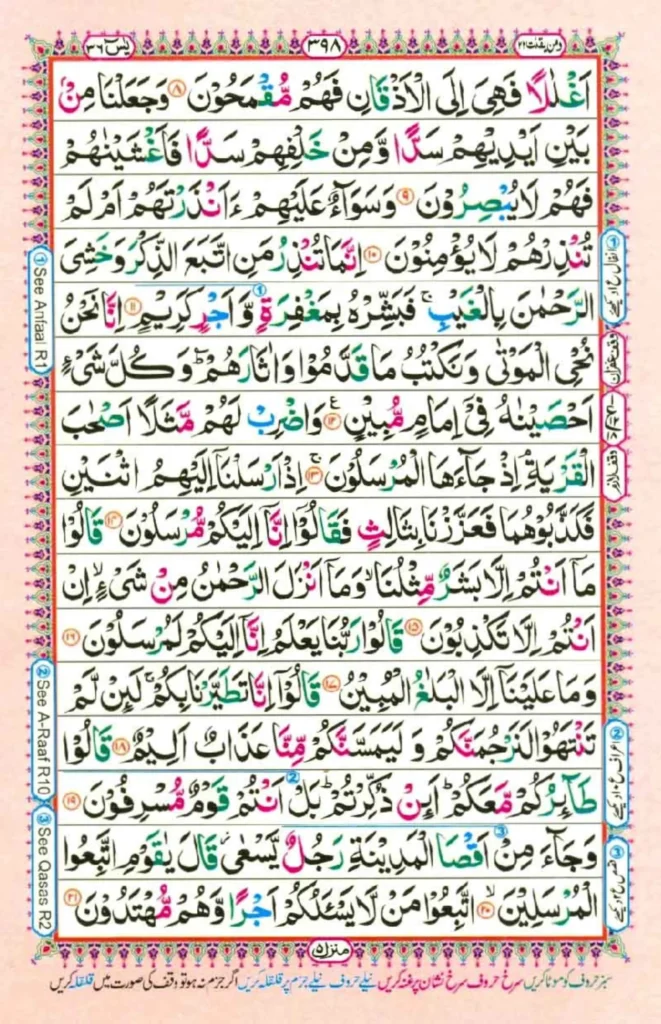 ومن یقنت ۲۲
۳۹۸
یٰسٓ ۳۶
اَغْلٰلًا فَهِیَ اِلَی الْاَذْقَانِ فَهُمْ مُّقْمَحُوْنَ ۸ وَجَعَلْنَا مِنْۢ
بَیْنِ اَیْدِیْهِمْ سَدًّا وَّمِنْ خَلْفِهِمْ سَدًّا فَاَغْشَیْنٰهُمْ
فَهُمْ لَا یُبْصِرُوْنَ ۹ وَسَوَآءٌ عَلَیْهِمْ ءَاَنْذَرْتَهُمْ اَمْ لَمْ
تُنْذِرْهُمْ لَا یُؤْمِنُوْنَ ۱۰ اِنَّمَا تُنْذِرُ مَنِ اتَّبَعَ الذِّكْرَ وَخَشِیَ
الرَّحْمٰنَ بِالْغَیْبِ ۚ فَبَشِّرْهُ بِمَغْفِرَةٍ وَّاَجْرٍ كَرِیْمٍ ۱۱ اِنَّا نَحْنُ
نُحْیِ الْمَوْتٰی وَنَكْتُبُ مَا قَدَّمُوْا وَاٰثَارَهُمْ ؕ وَكُلَّ شَیْءٍ
اَحْصَیْنٰهُ فِیْۤ اِمَامٍ مُّبِیْنٍ ۱۲ وَاضْرِبْ لَهُمْ مَّثَلًا اَصْحٰبَ
الْقَرْیَةِ ۘ اِذْ جَآءَهَا الْمُرْسَلُوْنَ ۱۳ اِذْ اَرْسَلْنَاۤ اِلَیْهِمُ اثْنَیْنِ
فَكَذَّبُوْهُمَا فَعَزَّزْنَا بِثَالِثٍ فَقَالُوْۤا اِنَّاۤ اِلَیْكُمْ مُّرْسَلُوْنَ ۱۴ قَالُوْا
مَاۤ اَنْتُمْ اِلَّا بَشَرٌ مِّثْلُنَا ۙ وَمَاۤ اَنْزَلَ الرَّحْمٰنُ مِنْ شَیْءٍ ۙ اِنْ
اَنْتُمْ اِلَّا تَكْذِبُوْنَ ۱۵ قَالُوْا رَبُّنَا یَعْلَمُ اِنَّاۤ اِلَیْكُمْ لَمُرْسَلُوْنَ ۱۶
وَمَا عَلَیْنَاۤ اِلَّا الْبَلٰغُ الْمُبِیْنُ ۱۷ قَالُوْۤا اِنَّا تَطَیَّرْنَا بِكُمْ ۚ لَىِٕنْ لَّمْ
تَنْتَهُوْا لَنَرْجُمَنَّكُمْ وَلَیَمَسَّنَّكُمْ مِّنَّا عَذَابٌ اَلِیْمٌ ۱۸ قَالُوْا
طَآىِٕرُكُمْ مَّعَكُمْ ؕ اَىِٕنْ ذُكِّرْتُمْ ؕ بَلْ اَنْتُمْ قَوْمٌ مُّسْرِفُوْنَ ۱۹
وَجَآءَ مِنْ اَقْصَا الْمَدِیْنَةِ رَجُلٌ یَّسْعٰی ؗ قَالَ یٰقَوْمِ اتَّبِعُوا
الْمُرْسَلِیْنَ ۙ ۲۰ اتَّبِعُوْا مَنْ لَّا یَسْـَٔلُكُمْ اَجْرًا وَّهُمْ مُّهْتَدُوْنَ ۲۱
① See Anfaal R1
② See A-Raaf R10
③ See Qasas R2
وقف غفران
وقف لازم
منزل ۵
سبز حروف کو موٹا کریں سرخ حروف سرخ نشان پر غنہ کریں نیلے حروف نیلے جزم پر قلقلہ کریں اگر جزم نہ ہو تو وقف کی صورت میں قلقلہ کریں